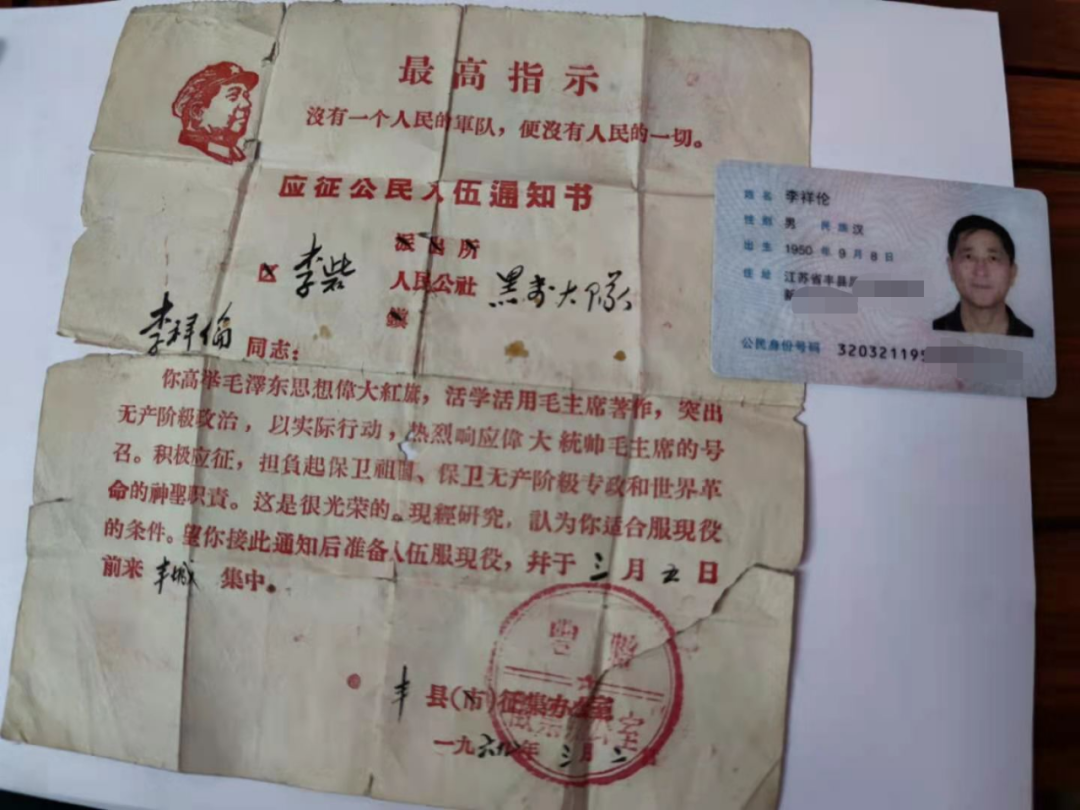 最高指示
沒有一个人民的軍队，便沒有人民的一切。
应征公民入伍通知书
派出所
区 李寨 人民公社 黑 大隊
鎮
李祥倫 同志：
你高举毛澤东思想偉大紅旗，活学活用毛主席著作，突出
无产阶級政治，以实际行动，热烈响应偉大統帅毛主席的号
召。积极应征，担負起保卫祖国、保卫无产阶級专政和世界革
命的神聖职責。这是很光荣的。現經研究，認为你适合服現役
的条件。望你接此通知后准备入伍服現役，幷于 三 月 五 日
前来 丰城 集中。
丰 县(市)征集办公室
一九六九年 三月 二日
豐縣
征集办公室
姓名 李祥伦
性别 男 民族 汉
出生 1950 年 9 月 8 日
住址 江苏省丰县
新
公民身份号码 320321195